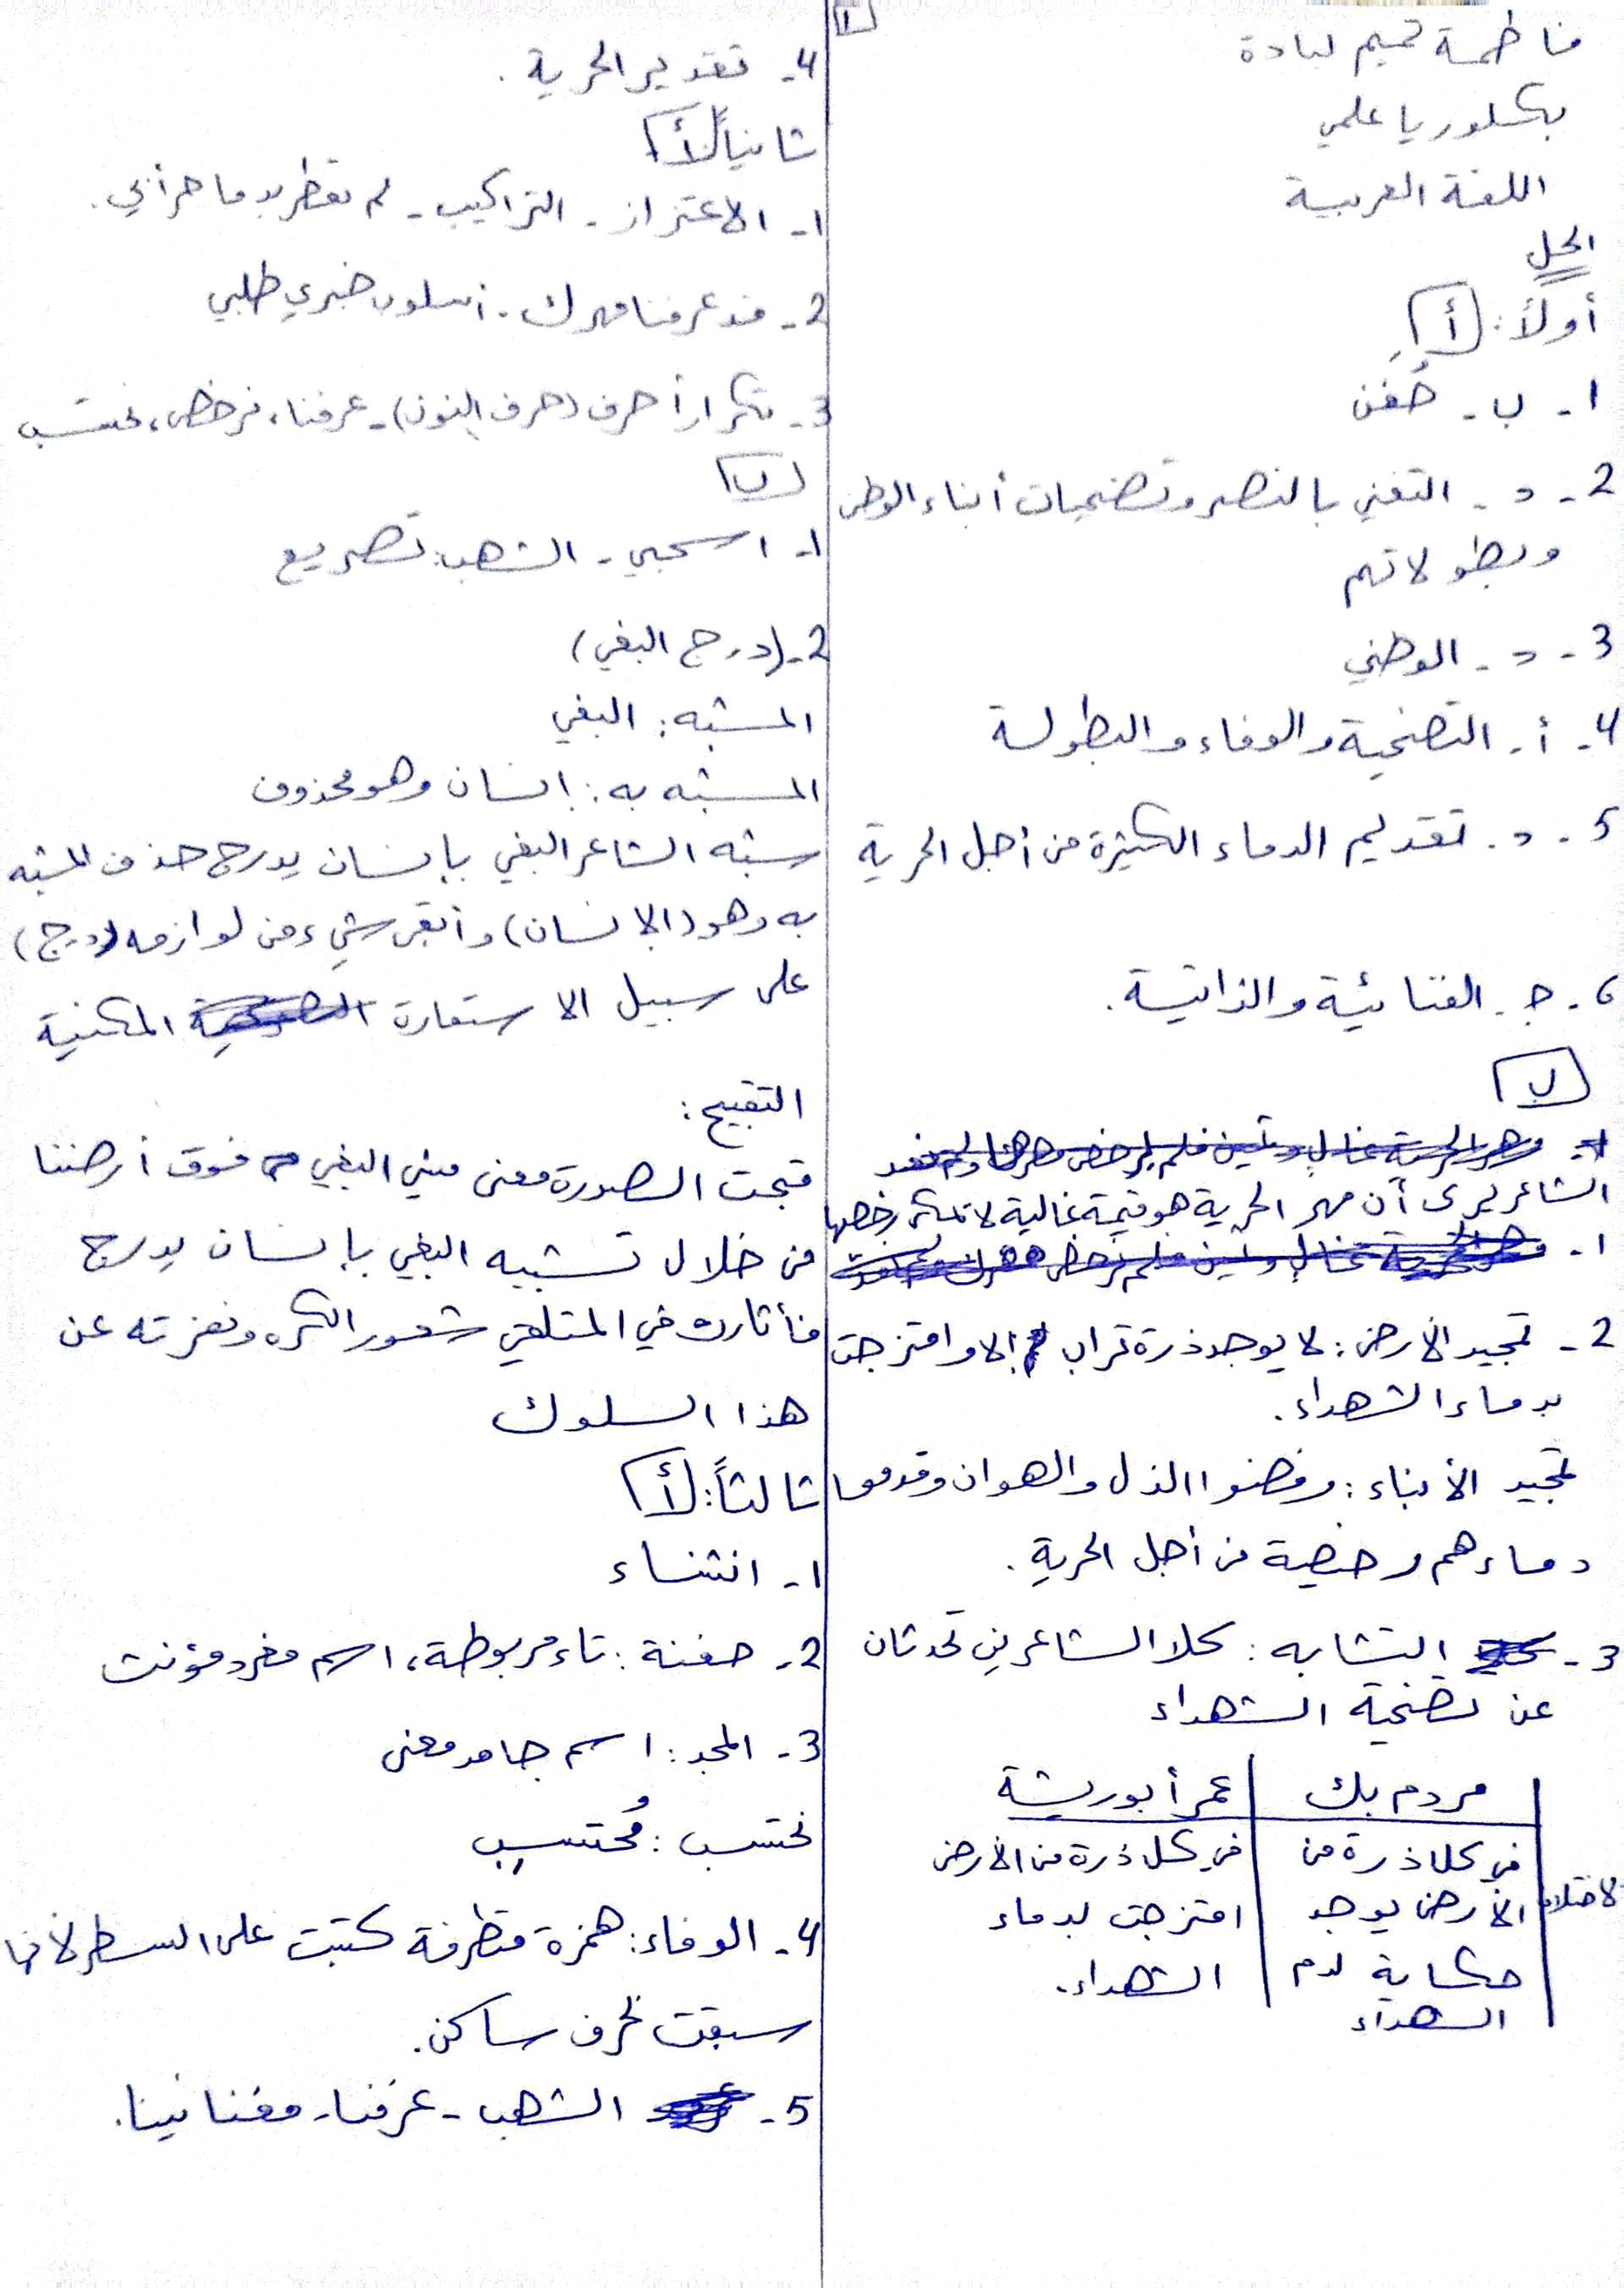 ١
فاطمة تميم لبادة
بكلوريا علمي
اللغة العربية
الحل
أولاً: أ
1- ب- حُفَن
2- د- التغني بالنصر وتضحيات أبناء الوطن
وبطولاتهم
3- د- الوطني
4- أ- التضحية والوفاء والبطولة
5- د- تقديم الدماء الكثيرة من أجل الحرية
6- ج- الغنائية والذاتية.
ب
الشاعر يرى أن مهر الحرية هو قيمة غالية لا نكثر رخصها
1-
2- تمجيد الأرض: لا يوجد ذرة تراب إلا وامتزجت
بدماء الشهداء.
تمجيد الأبناء: رفضوا الذل والهوان وقدموا
دماءهم رخيصة من أجل الحرية.
3- التشابه: كلا الشاعرين تحدثان
عن تضحية الشهداء
الاختلاف
مردم بك | عمر أبو ريشة
في كل ذرة من | في كل ذرة من الأرض
الأرض يوجد | امتزجت بدماء
حكاية لدم | الشهداء.
الشهداء
4- تقدير الحرية.
ثانياً أ
1- الاعتزاز- التراكيب- لم تعطر بدما حر أبي.
2- قد عرفنا مهرك- أسلوب خبري طلبي
3- تكرار أحرف (حرف النون)- عرفنا، نرخص، نحتسب
ب
1- اسحبي- الشهب: تصريع
2- (درج البغي)
المشبه: البغي
المشبه به: إنسان وهو محذوف
شبه الشاعر البغي بإنسان يدرج حذف المشبه
به وهو (الإنسان) وأبقى شيء من لوازمه (درج)
على سبيل الاستعارة المكنية
التقبيح:
قبحت الصورة معنى مشي البغي فوق أرضنا
من خلال تشبيه البغي بإنسان يدرج
فأثارت في المتلقي شعور الكره ونفرته عن
هذا السلوك
ثالثاً: أ
1- انتشاء
2- حفنة: تاء مربوطة، اسم مفرد مؤنث
3- المجد: اسم جامد معنى
نحتسب: مُحتسِب
4- الوفاء: همزة متطرفة كتبت على السطر لأنها
سبقت بحرف ساكن.
5- الشهب- عرفنا- مغنانينا.